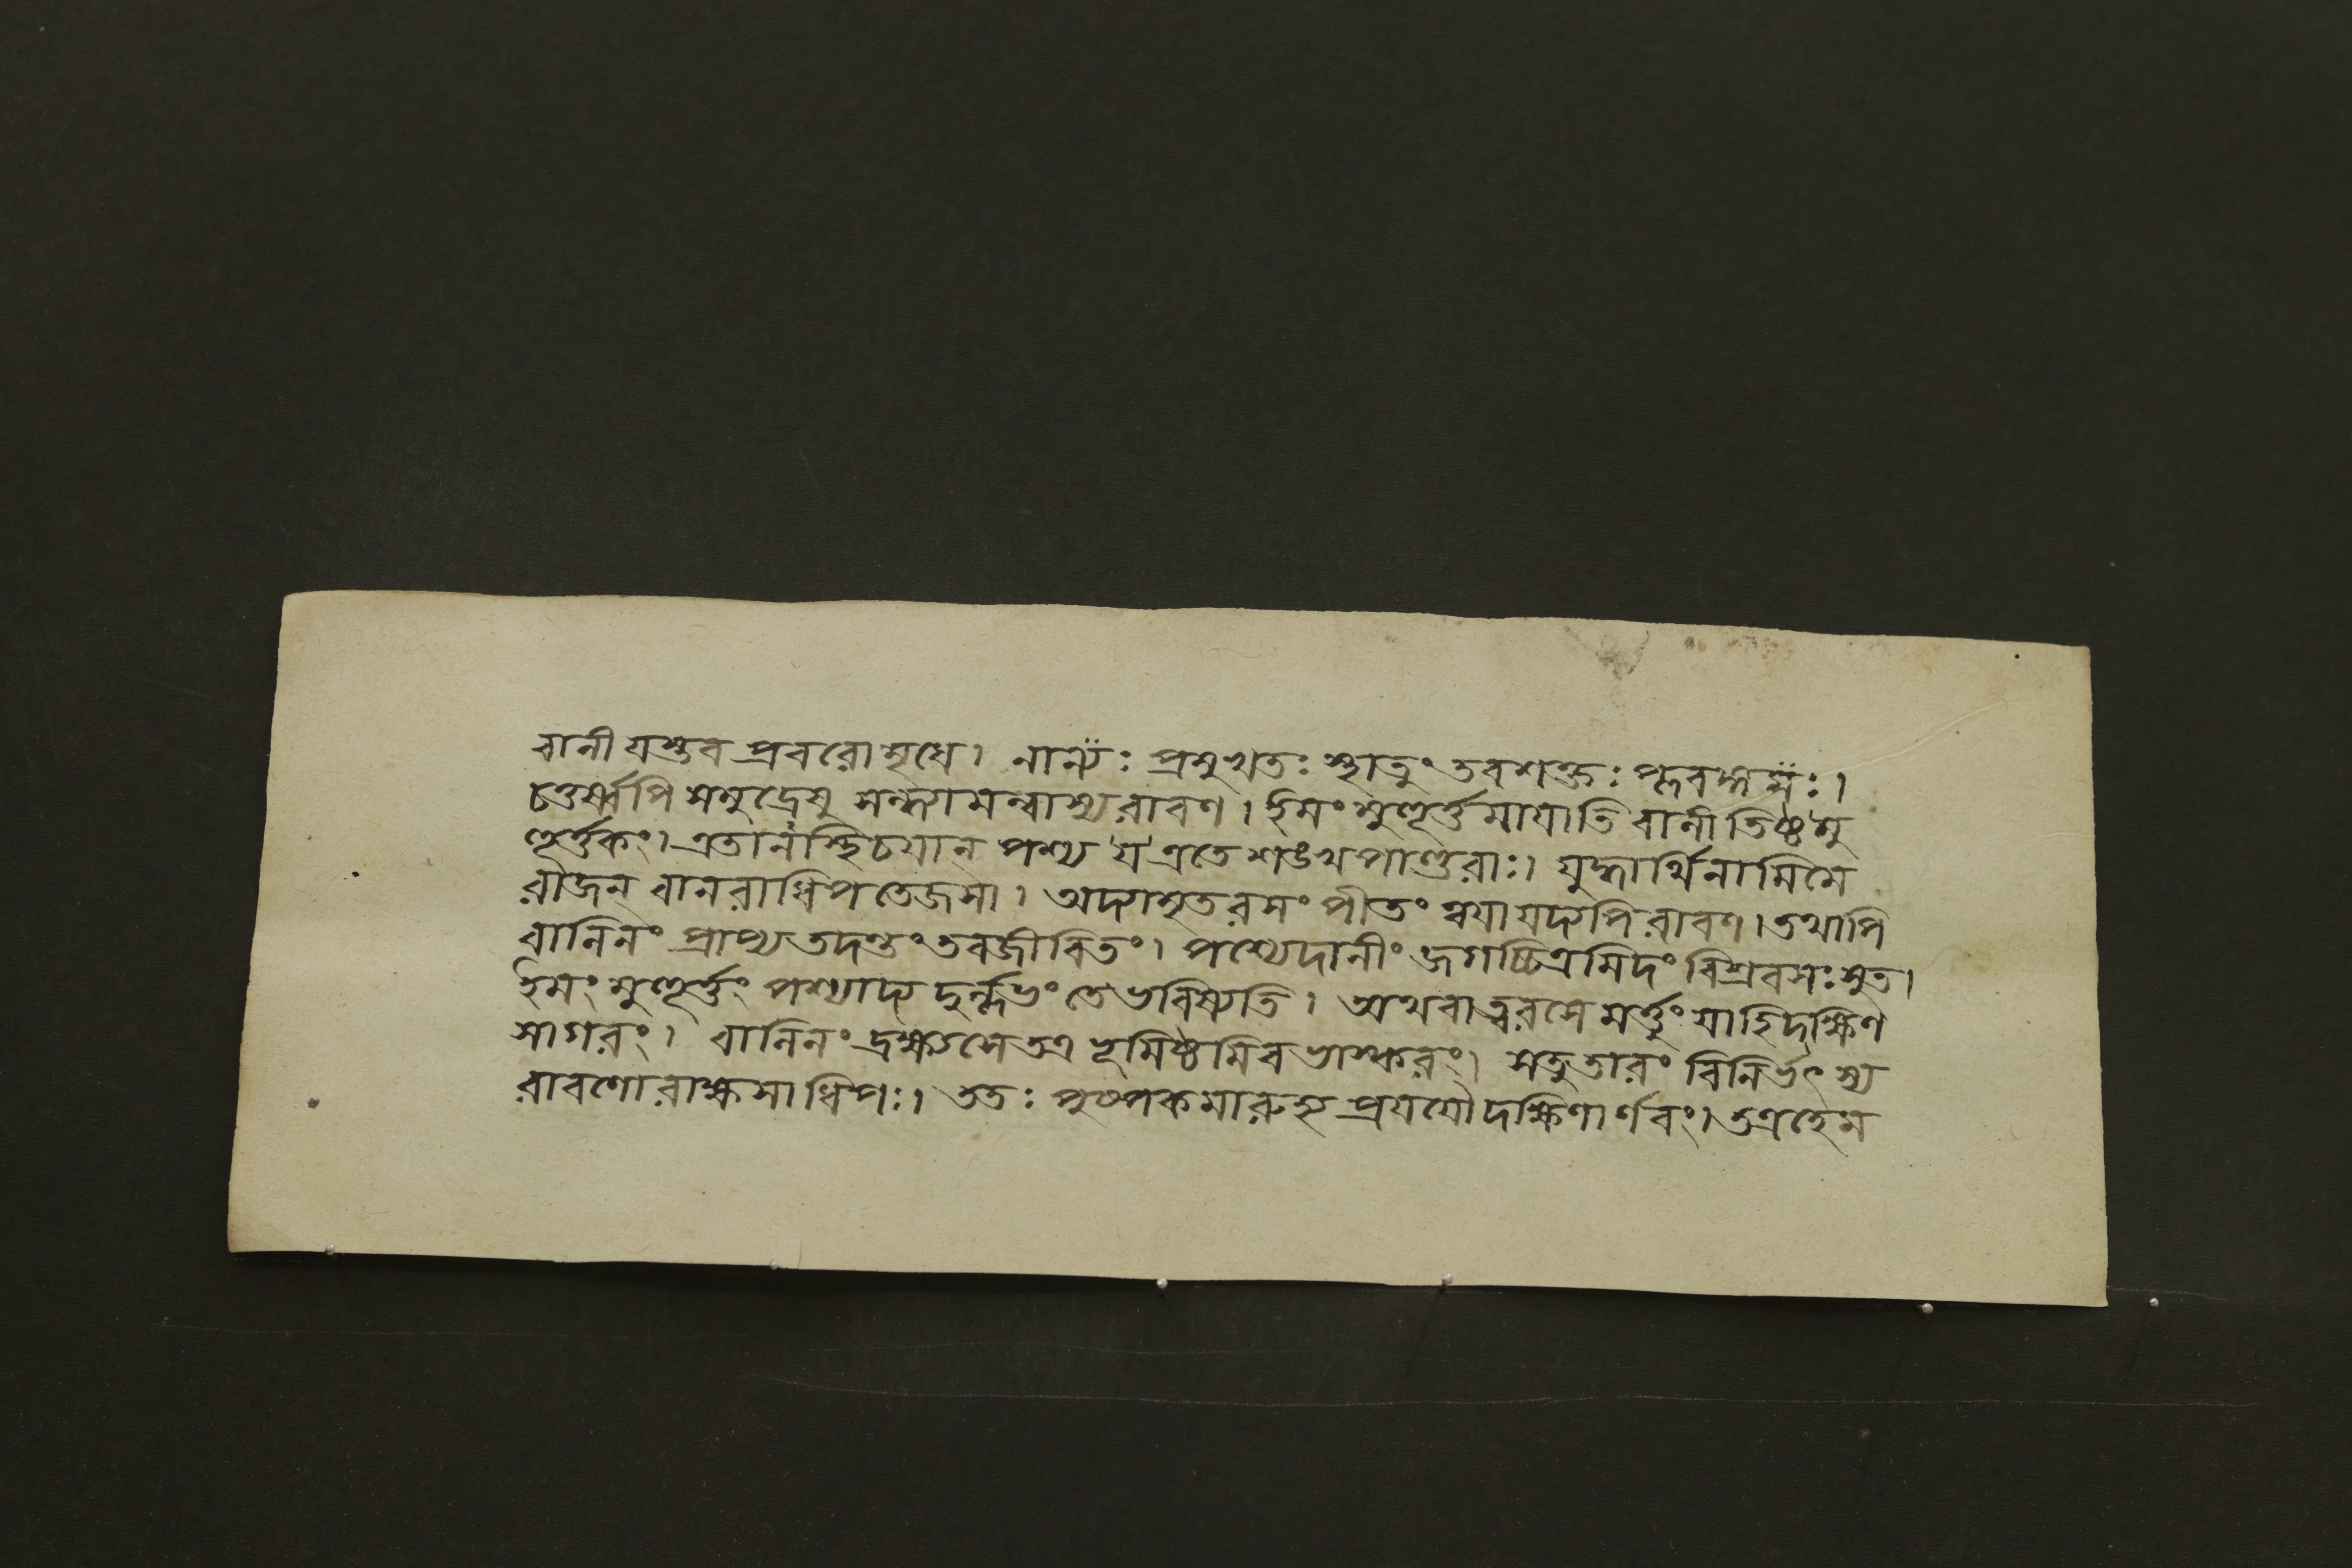 বালী যস্তব প্রবরো মৃধে। নান্যঃ প্রমুখতঃ স্থাতুং তবশক্তঃ প্লবঙ্গমঃ।
চতুর্ষ্বপি সমুদ্রেষু সন্ধ্যামন্বাস্য রাবণ। ইমং মুহূর্ত্তমাযাতি বালী তিষ্ঠ মু
হূর্ত্তকং। এতানস্থিচযান্ পশ্য য এতে শঙখপাণ্ডুরাঃ। যুদ্ধার্থিনামিমে
রাজন্ বানরাধিপতেজসা। অদ্যামৃতরসং পীতং ত্বযা যদ্যপি রাবণ। তথাপি
বালিনং প্রাপ্য তদন্তং তবজীবিতং। পশ্যেদানীং জগচ্চিত্রমিদং বিশ্রবসঃ সুত।
ইমং মুহূর্ত্তং পশ্যাদ্য দুর্ল্লভং তে ভবিষ্যতি। অথবা ত্বরসে মর্ত্তুং যাহি দক্ষিণ
সাগরং। বালিনং দ্রক্ষ্যসে তত্র ভূমিষ্ঠমিব ভাস্করং। সতু তারং বিনির্ভৎস্য
রাবণো রাক্ষসাধিপঃ। ততঃ পুষ্পকমারুহ্য প্রযযৌ দক্ষিণার্ণবং। তত্রহেম